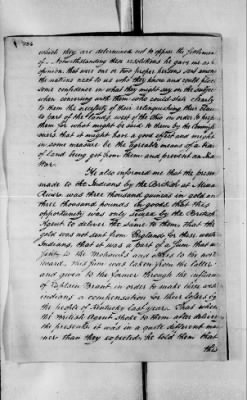 which they are determined not to oppose the gentleman
of. Notwithstanding their resolutions he gave us as his
opinion, that were one or two proper persons sent among
the nations next to us who they know and could place
some confidence in what they might say on the subject
when conversing with them who could state clearly
to them the necessity of their relinquishing their Claim
to part of the lands west of the Ohio in order to prepare
them for what might be said to them by the Commis-
sioners that it might have a good effect and might
in some measure be the agreeable means of a tract
of Land being got from them and prevent an Indian
War.
He also informed me that the present
made to the Indians by the British at Miami
Rivers was three thousand guineas in gold and
three thousand pounds in goods that this
opportunity was only seized by the British
Agent to deliver the same to them that the
gold was not sent from England for these western
Indians, that it was a part of a Sum that was
sent to the Mohawks and others to the north
ward. This sum was taken from the latter
and given to the former through the influence
of Captain Brant in order to make these western
indians a compensation for their losses by
the people of Kentucky last year. That when
the British Agent spoke to them after delivering
the presents it was in a quite different man-
ner than they expected, he told them that
this